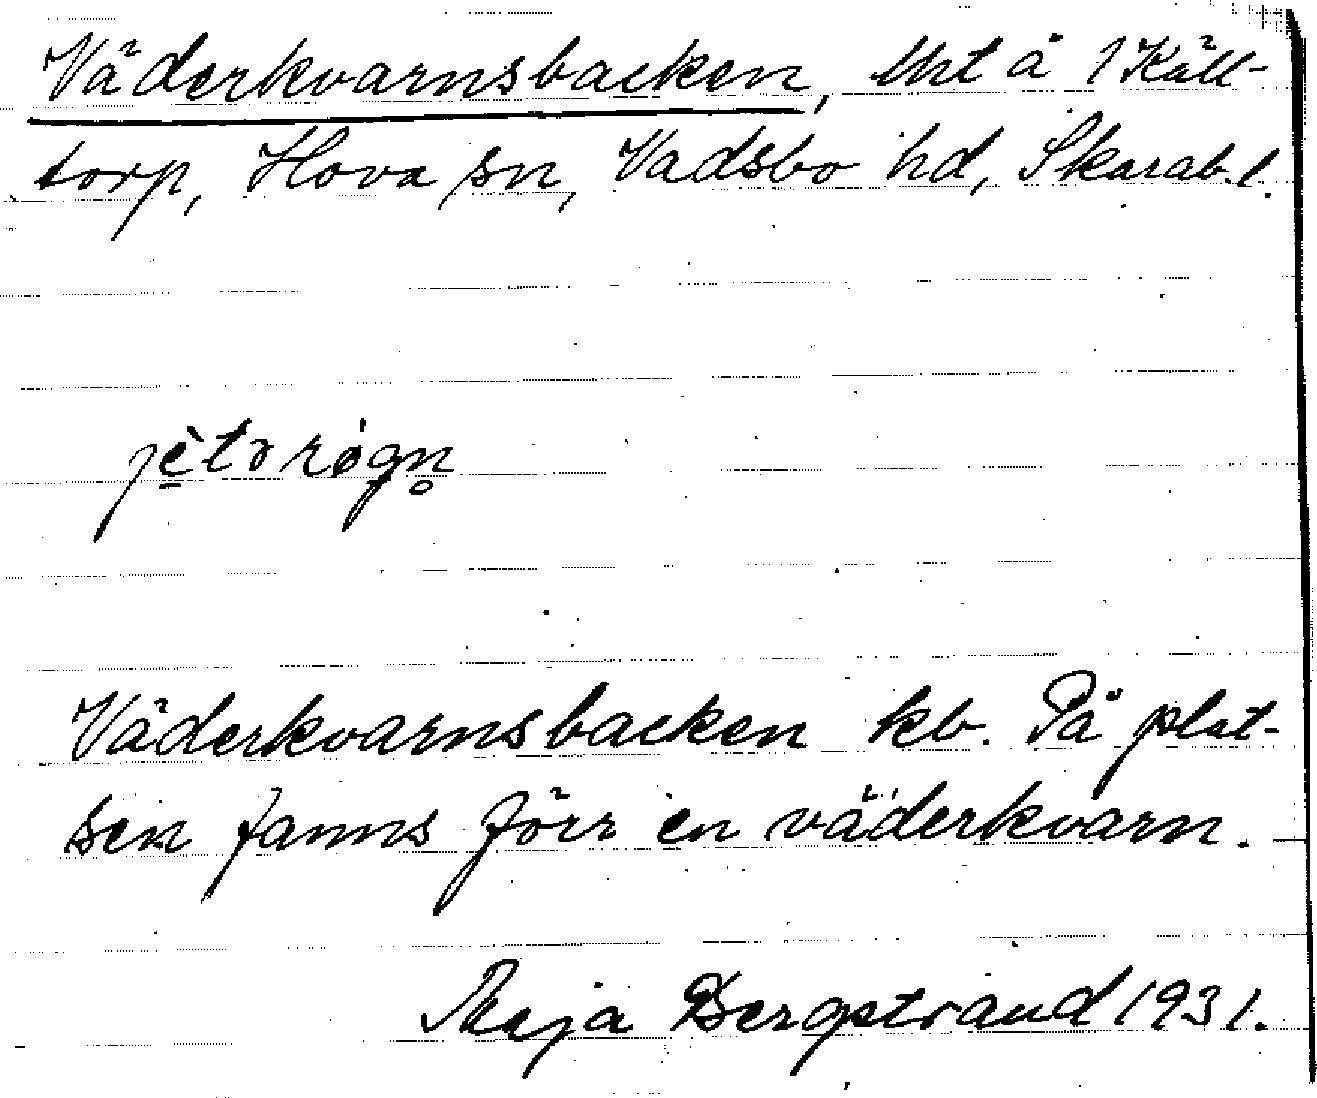 Väderkvarnsbacken, tht å 1 Käll-
torp, Hova sn, Vadsbo hd, Skarab. l.
Väderkvarnsbacken kb. På plat-
sen fanns förr en väderkvarn.
Maja Bergstrand 1931.